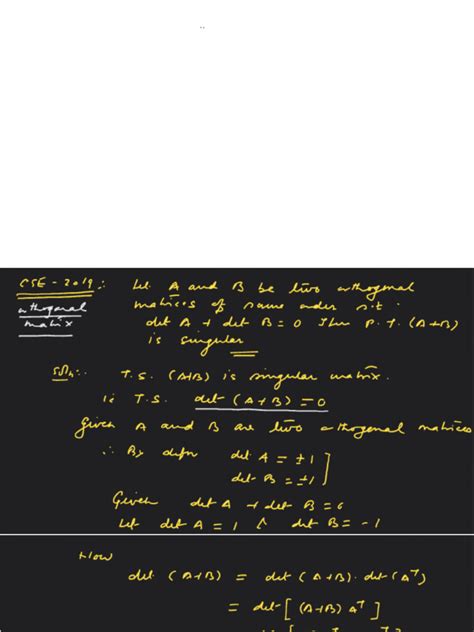 CSE - 2019 :
orthogonal
matrix
Let A and B be two orthogonal
matrices of same order s.t.
det A + det B = 0 Then P.T. (A+B)
is singular
Soln:.
T.S. (A+B) is singular matrix.
ie T.S. det (A+B) = 0
Given A and B are two orthogonal matrices
∴ By defn det A = ±1
det B = ±1
Given det A + det B = 0
Let det A = 1 & det B = -1
Now
det (A+B) = det (A+B). det (Aᵀ)
= det [ (A+B) Aᵀ ]